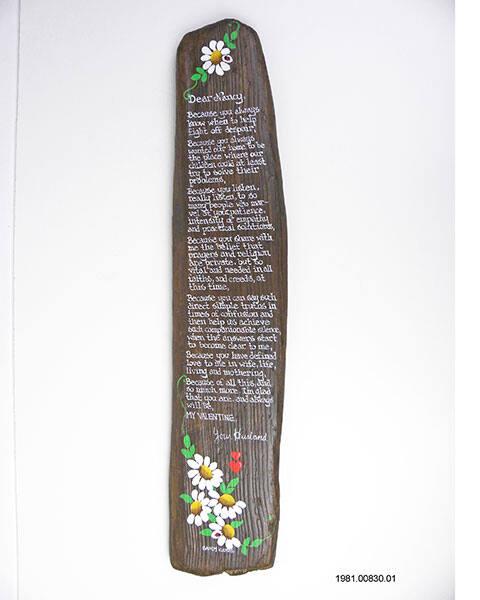 Dear Nancy,
Because you always
know when to help
fight off despair,
Because you always
wanted our home to be
the place where our
children could at least
try to solve their
problems,
Because you listen,
really listen, to so
many people who mar-
vel at your patience,
intensity of empathy
and practical solutions,
Because you share with
me the belief that
prayers and religion
are private, but so
vital and needed in all
faiths, and creeds, at
this time,
Because you can say such
direct simple truths in
times of confusion and
then help us achieve
such companionable silence,
when the answers start
to become clear to me,
Because you have defined
love to me in wife, life,
living and mothering,
Because of all this, and
so much more, I'm glad
that you are, and always
will be,
MY VALENTINE.
Your Husband
1981.00830.01